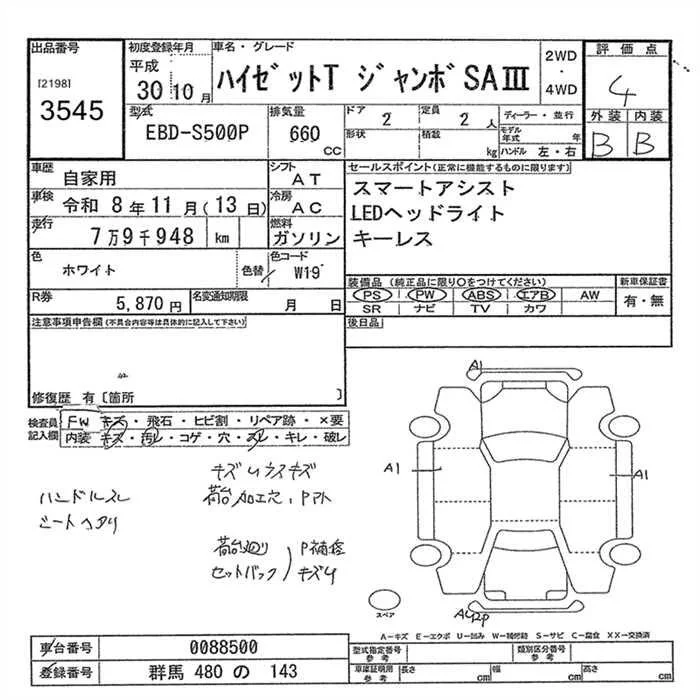 出品番号
[2198]
3545
初度登録年月
平成
30 10 月
車名・グレード
ハイゼットT ジャンボ SAⅢ
2WD
・
4WD
評価点
4
外装 内装
B B
型式
EBD-S500P
排気量
660
CC
ドア
2
定員
2 人
形状
積載
kg
ディーラー・並行
モデル
年式
年
ハンドル 左・右
車歴
自家用
シフト
AT
車検
令和 8年 11月(13日)
冷房
AC
走行
7万9千948 km
燃料
ガソリン
色
ホワイト
色替
色コード
W19
R券
5,870 円
名変通知期限
月 日
セールスポイント(正常に機能するものに限ります)
スマートアシスト
LEDヘッドライト
キーレス
装備品(純正品に限り○をつけてください)
PS PW ABS エアB AW
SR ナビ TV カワ
新車保証書
有・無
後日品
注意事項申告欄(不具合内容等は具体的に記入して下さい)
修復歴 有〔箇所 〕
検査員
記入欄
FW キズ・飛石・ヒビ割・リペア跡・×要
内装 キズ・汚レ・コゲ・穴・スレ・キレ・破レ
キズ
ハンドルスレ
荷台加工穴
荷台廻り
P補修
セットバック
A1
A1
A1
スペア
A-キズ E-エクボ U-凹み W-補修跡 S-サビ C-腐食 XX-交換済
車台番号
0088500
登録番号
群馬 480 の 143
型式指定番号
参考
類別区分番号
参考
車庫証明用
参考
長さ cm
幅 cm
高さ cm